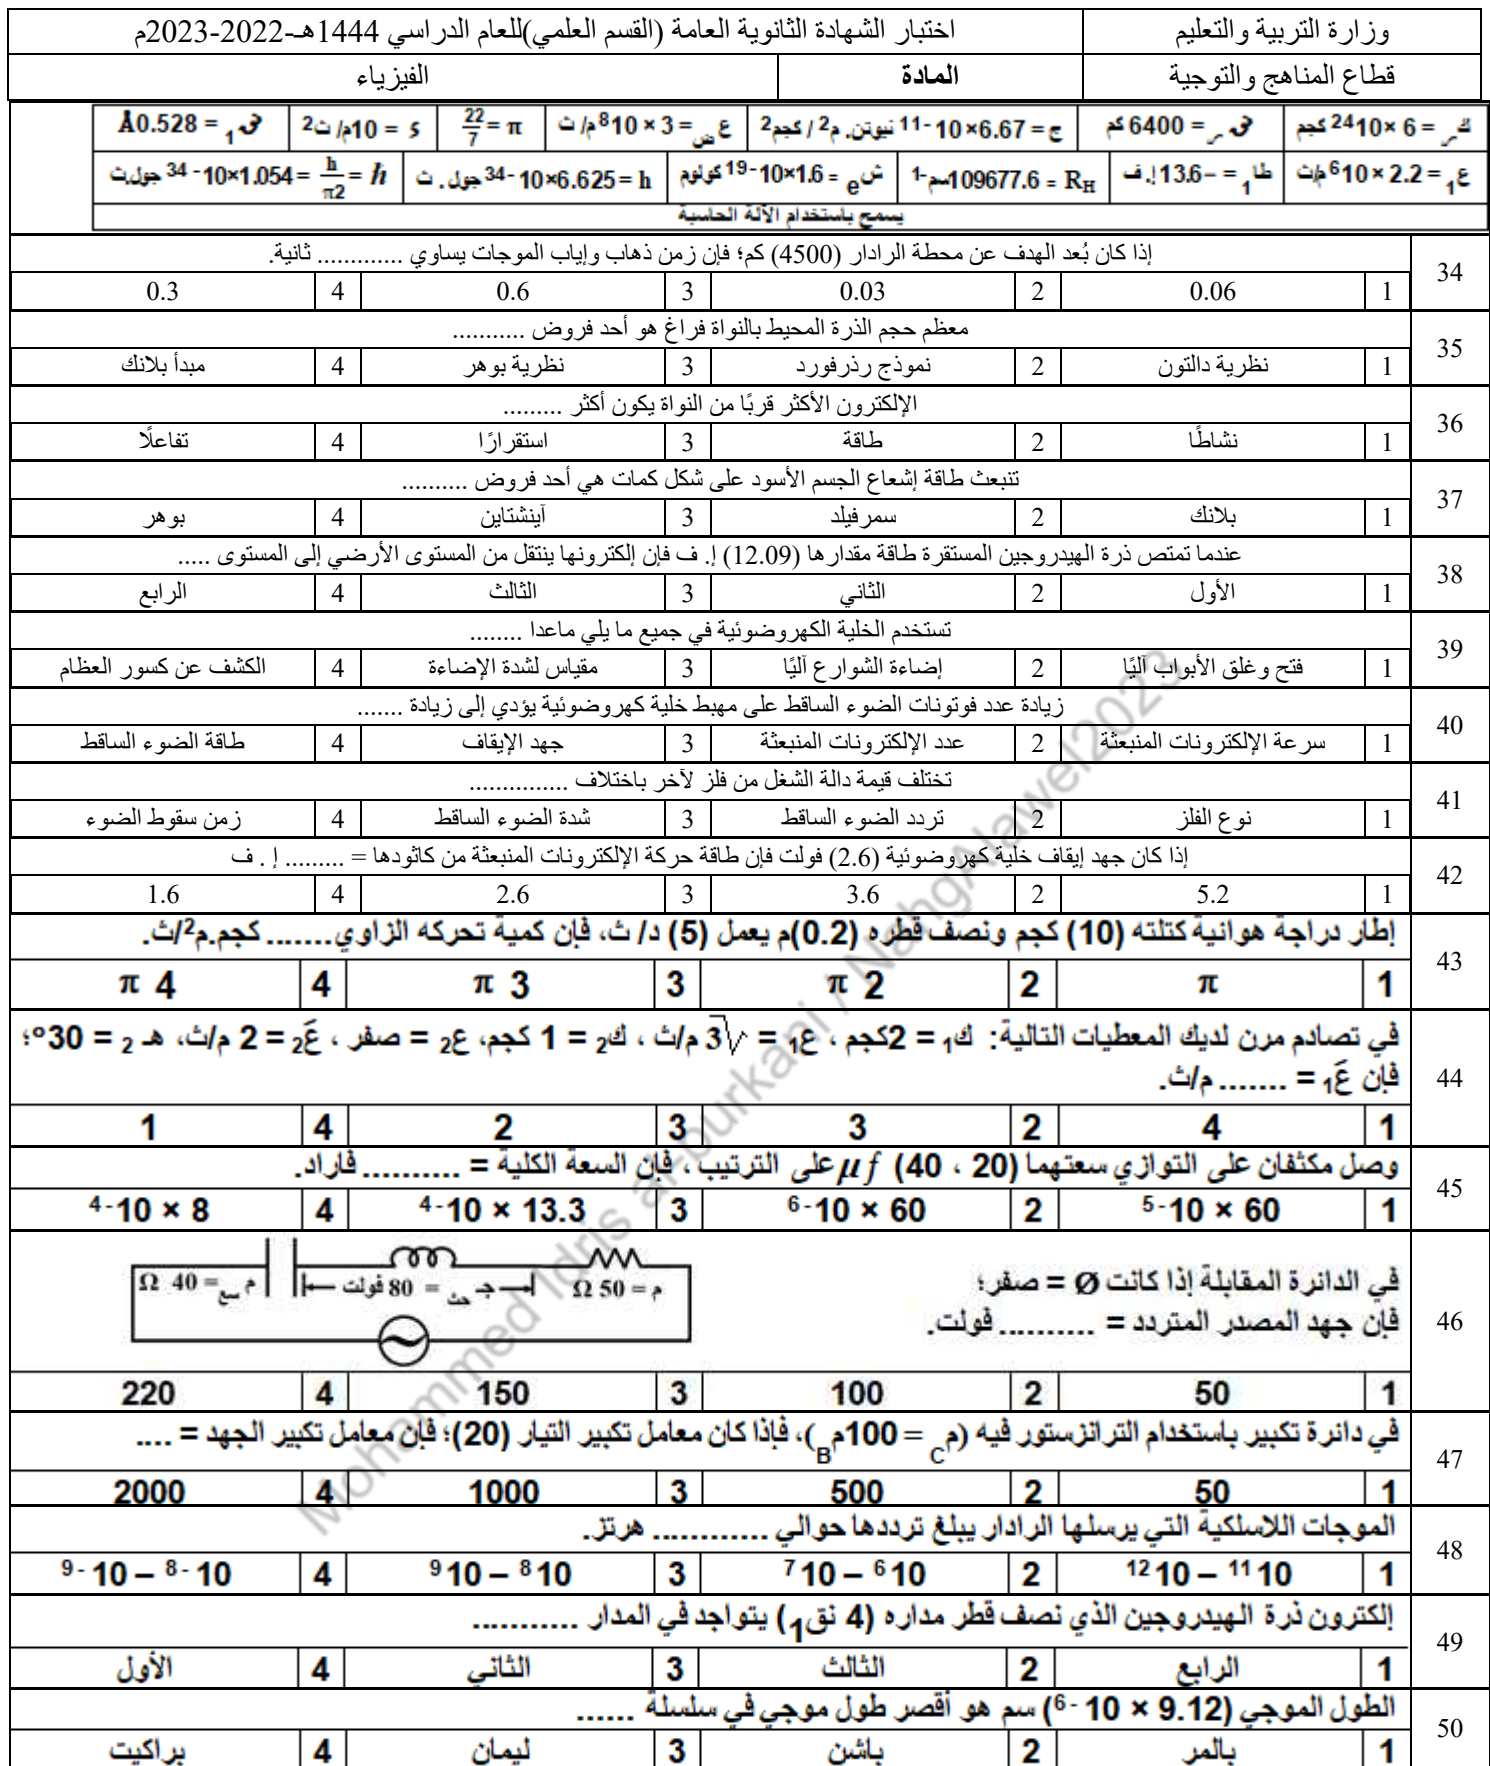 وزارة التربية والتعليم اختبار الشهادة الثانوية العامة (القسم العلمي)للعام الدراسي 1444هـ-2022-2023م
قطاع المناهج والتوجية المادة الفيزياء
كـ س = 6 ×10^24 كجم نق س = 6400 كم ج = 6.67×10^-11 نيوتن. م^2 / كجم^2 ع ض = 3 × 10^8 م/ ث π = 22/7 د = 10م/ ث^2 نق 1 = 0.528Å
ع 1 = 2.2 × 10^6 م/ث طا 1 = –13.6 إ. ف R_H = 109677.6 سم^-1 ش e = 1.6×10^-19 كولوم h = 6.625×10^-34 جول . ث ħ = h/π2 = 1.054×10^-34 جول.ث
يسمح باستخدام الآلة الحاسبة
34 إذا كان بُعد الهدف عن محطة الرادار (4500) كم؛ فإن زمن ذهاب وإياب الموجات يساوي ............. ثانية.
1 0.06 2 0.03 3 0.6 4 0.3
35 معظم حجم الذرة المحيط بالنواة فراغ هو أحد فروض ...........
1 نظرية دالتون 2 نموذج رذرفورد 3 نظرية بوهر 4 مبدأ بلانك
36 الإلكترون الأكثر قربًا من النواة يكون أكثر .........
1 نشاطًا 2 طاقة 3 استقرارًا 4 تفاعلًا
37 تنبعث طاقة إشعاع الجسم الأسود على شكل كمات هي أحد فروض ..........
1 بلانك 2 سمرفيلد 3 آينشتاين 4 بوهر
38 عندما تمتص ذرة الهيدروجين المستقرة طاقة مقدارها (12.09) إ. ف فإن إلكترونها ينتقل من المستوى الأرضي إلى المستوى .....
1 الأول 2 الثاني 3 الثالث 4 الرابع
39 تستخدم الخلية الكهروضوئية في جميع ما يلي ماعدا ........
1 فتح وغلق الأبواب آليًا 2 إضاءة الشوارع آليًا 3 مقياس لشدة الإضاءة 4 الكشف عن كسور العظام
40 زيادة عدد فوتونات الضوء الساقط على مهبط خلية كهروضوئية يؤدي إلى زيادة .......
1 سرعة الإلكترونات المنبعثة 2 عدد الإلكترونات المنبعثة 3 جهد الإيقاف 4 طاقة الضوء الساقط
41 تختلف قيمة دالة الشغل من فلز لآخر باختلاف ...............
1 نوع الفلز 2 تردد الضوء الساقط 3 شدة الضوء الساقط 4 زمن سقوط الضوء
42 إذا كان جهد إيقاف خلية كهروضوئية (2.6) فولت فإن طاقة حركة الإلكترونات المنبعثة من كاثودها = ......... إ . ف
1 5.2 2 3.6 3 2.6 4 1.6
43 إطار دراجة هوائية كتلته (10) كجم ونصف قطره (0.2)م يعمل (5) د/ ث، فإن كمية تحركه الزاوي....... كجم.م^2/ث.
1 π 2 2 π 3 3 π 4 4 π
44 في تصادم مرن لديك المعطيات التالية: ك1 = 2كجم ، ع1 = √3 م/ث ، ك2 = 1 كجم، ع2 = صفر ، عَ2 = 2 م/ث، هـ 2 = 30°؛
فإن عَ1 = ....... م/ث.
1 4 2 3 3 2 4 1
45 وصل مكثفان على التوازي سعتهما (20 ، 40) μf على الترتيب ، فإن السعة الكلية = .......... فاراد.
1 60 × 10^-5 2 60 × 10^-6 3 13.3 × 10^-4 4 8 × 10^-4
46 في الدائرة المقابلة إذا كانت Ø = صفر؛
فإن جهد المصدر المتردد = .......... فولت.
م = 50 Ω جـ حث = 80 فولت م سع = 40 Ω
1 50 2 100 3 150 4 220
47 في دائرة تكبير باستخدام الترانزستور فيه (م C = 100م B)، فإذا كان معامل تكبير التيار (20)؛ فإن معامل تكبير الجهد = ....
1 50 2 500 3 1000 4 2000
48 الموجات اللاسلكية التي يرسلها الرادار يبلغ ترددها حوالي ............ هرتز.
1 10^11 – 10^12 2 10^6 – 10^7 3 10^8 – 10^9 4 10^-8 – 10^-9
49 إلكترون ذرة الهيدروجين الذي نصف قطر مداره (4 نق1) يتواجد في المدار ...........
1 الرابع 2 الثالث 3 الثاني 4 الأول
50 الطول الموجي (9.12 × 10^-6) سم هو أقصر طول موجي في سلسلة ......
1 بالمر 2 باشن 3 ليمان 4 براكيت
Mohammed Idris al-purkani / NahgAlawel2023